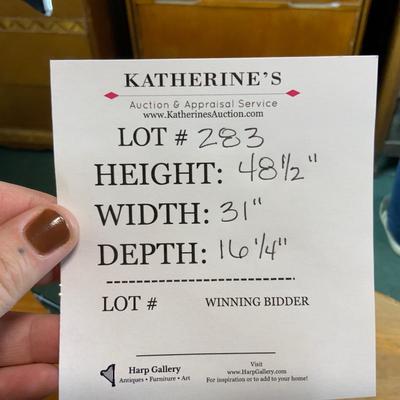 KATHERINE'S
Auction & Appraisal Service
www.KatherinesAuction.com
LOT # 283
HEIGHT: 48 1/2"
WIDTH: 31"
DEPTH: 16 1/4"
LOT # WINNING BIDDER
Harp Gallery
Antiques • Furniture • Art
Visit
www.HarpGallery.com
For inspiration or to add to your home!